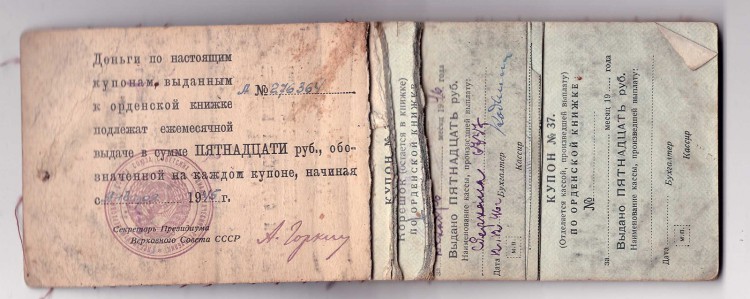 Деньги по настоящим
купонам, выданным
к орденской книжке
А №276364
подлежат ежемесячной
выдаче в сумме ПЯТНАДЦАТИ руб., обо-
значенной на каждом купоне, начиная
с 1945 г.
Секретарь Президиума
Верховного Совета СССР
А. Горкин
КУПОН №
Корешок (остается в книжке)
ПО ОРДЕНСКОЙ КНИЖКЕ
за месяц 1946 года
Выдано ПЯТНАДЦАТЬ руб.
Наименование кассы, произведшей выплату:
Дата
Бухгалтер
Кассир
м.п.
КУПОН № 37.
(Отделяется кассой, произведшей выплату)
ПО ОРДЕНСКОЙ КНИЖКЕ
№
за месяц 19 года
Выдано ПЯТНАДЦАТЬ руб.
Наименование кассы, произведшей выплату:
Дата
Бухгалтер
Кассир
м.п.